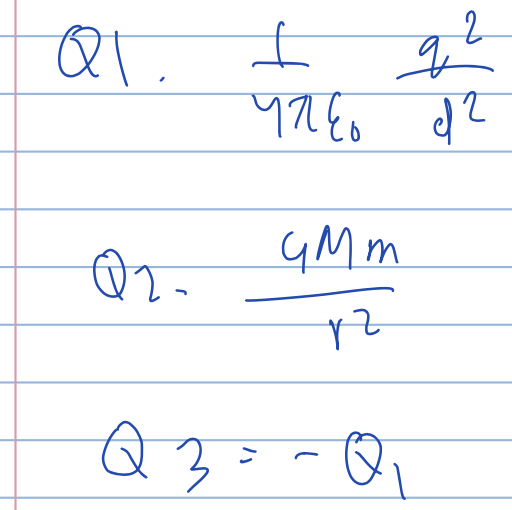 Q1. 1/4πε₀ q²/d²
Q2. GMm/r²
Q3 = -Q₁